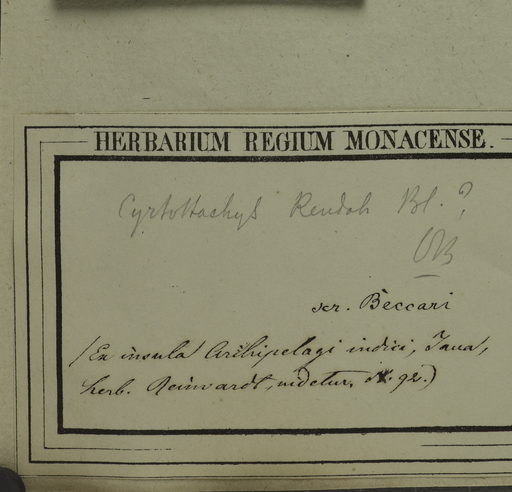 HERBARIUM REGIUM MONACENSE.
Cyrtostachys Rendah Bl. ?
OB
scr. Beccari
(Ex insula Archipelagi indici, Java,
herb. Reinwardt, videtur, N. 92.)